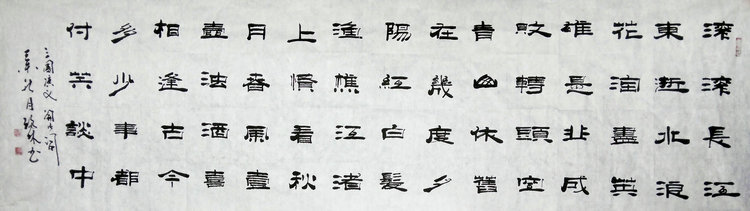 滚滚長江
東逝水浪
花淘盡英
雄是非成
敗轉頭空
青山依舊
在幾度夕
陽紅白髮
漁樵江渚
上慣看秋
月春風壹
壺浊酒喜
相逢古今
多少事都
付笑談中
三國演义
九月 书